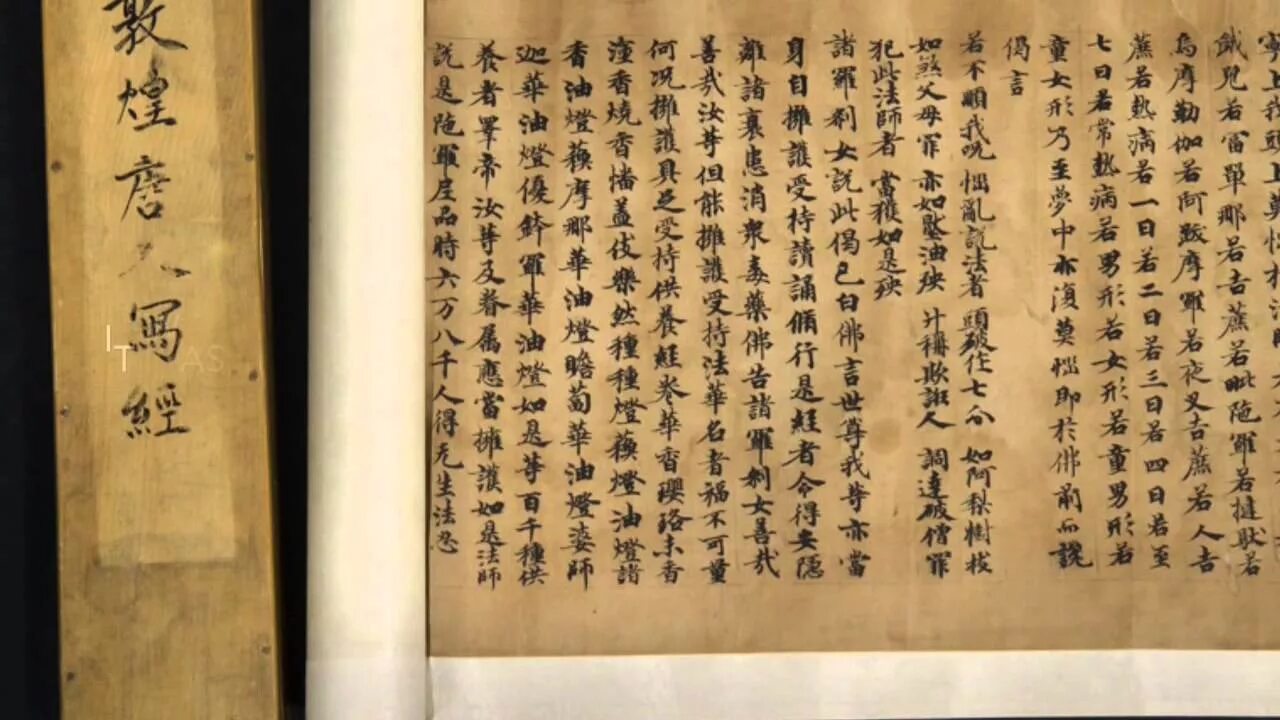 上我頭上莫惱於法師
餓鬼若富單那若吉蔗若毗陁羅若揵馱若
烏摩勒伽若阿跋摩羅若夜叉吉蔗若人吉
蔗若熱病若一日若二日若三日若四日若至
七日若常熱病若男形若女形若童男形若
童女形乃至夢中亦復莫惱即於佛前而說
偈言
若不順我呪 惱亂說法者 頭破作七分 如阿梨樹枝
如煞父母罪 亦如壓油殃 升秤欺誑人 調達破僧罪
犯此法師者 當獲如是殃
諸羅剎女說此偈已白佛言世尊我等亦當
身自擁護受持讀誦脩行是經者令得安隱
離諸衰患消衆毒藥佛告諸羅剎女善哉
善哉汝等但能擁護受持法華名者福不可量
何況擁護具足受持供養經卷華香瓔珞末香
塗香燒香幡蓋伎樂然種種燈蘓燈油燈諸
香油燈蘓摩那華油燈瞻蔔華油燈婆師
迦華油燈優鉢羅華油燈如是等百千種供
養者睪帝汝等及眷属應當擁護如是法師
說是陁羅尼品時六万八千人得无生法忍
敦煌唐人寫經